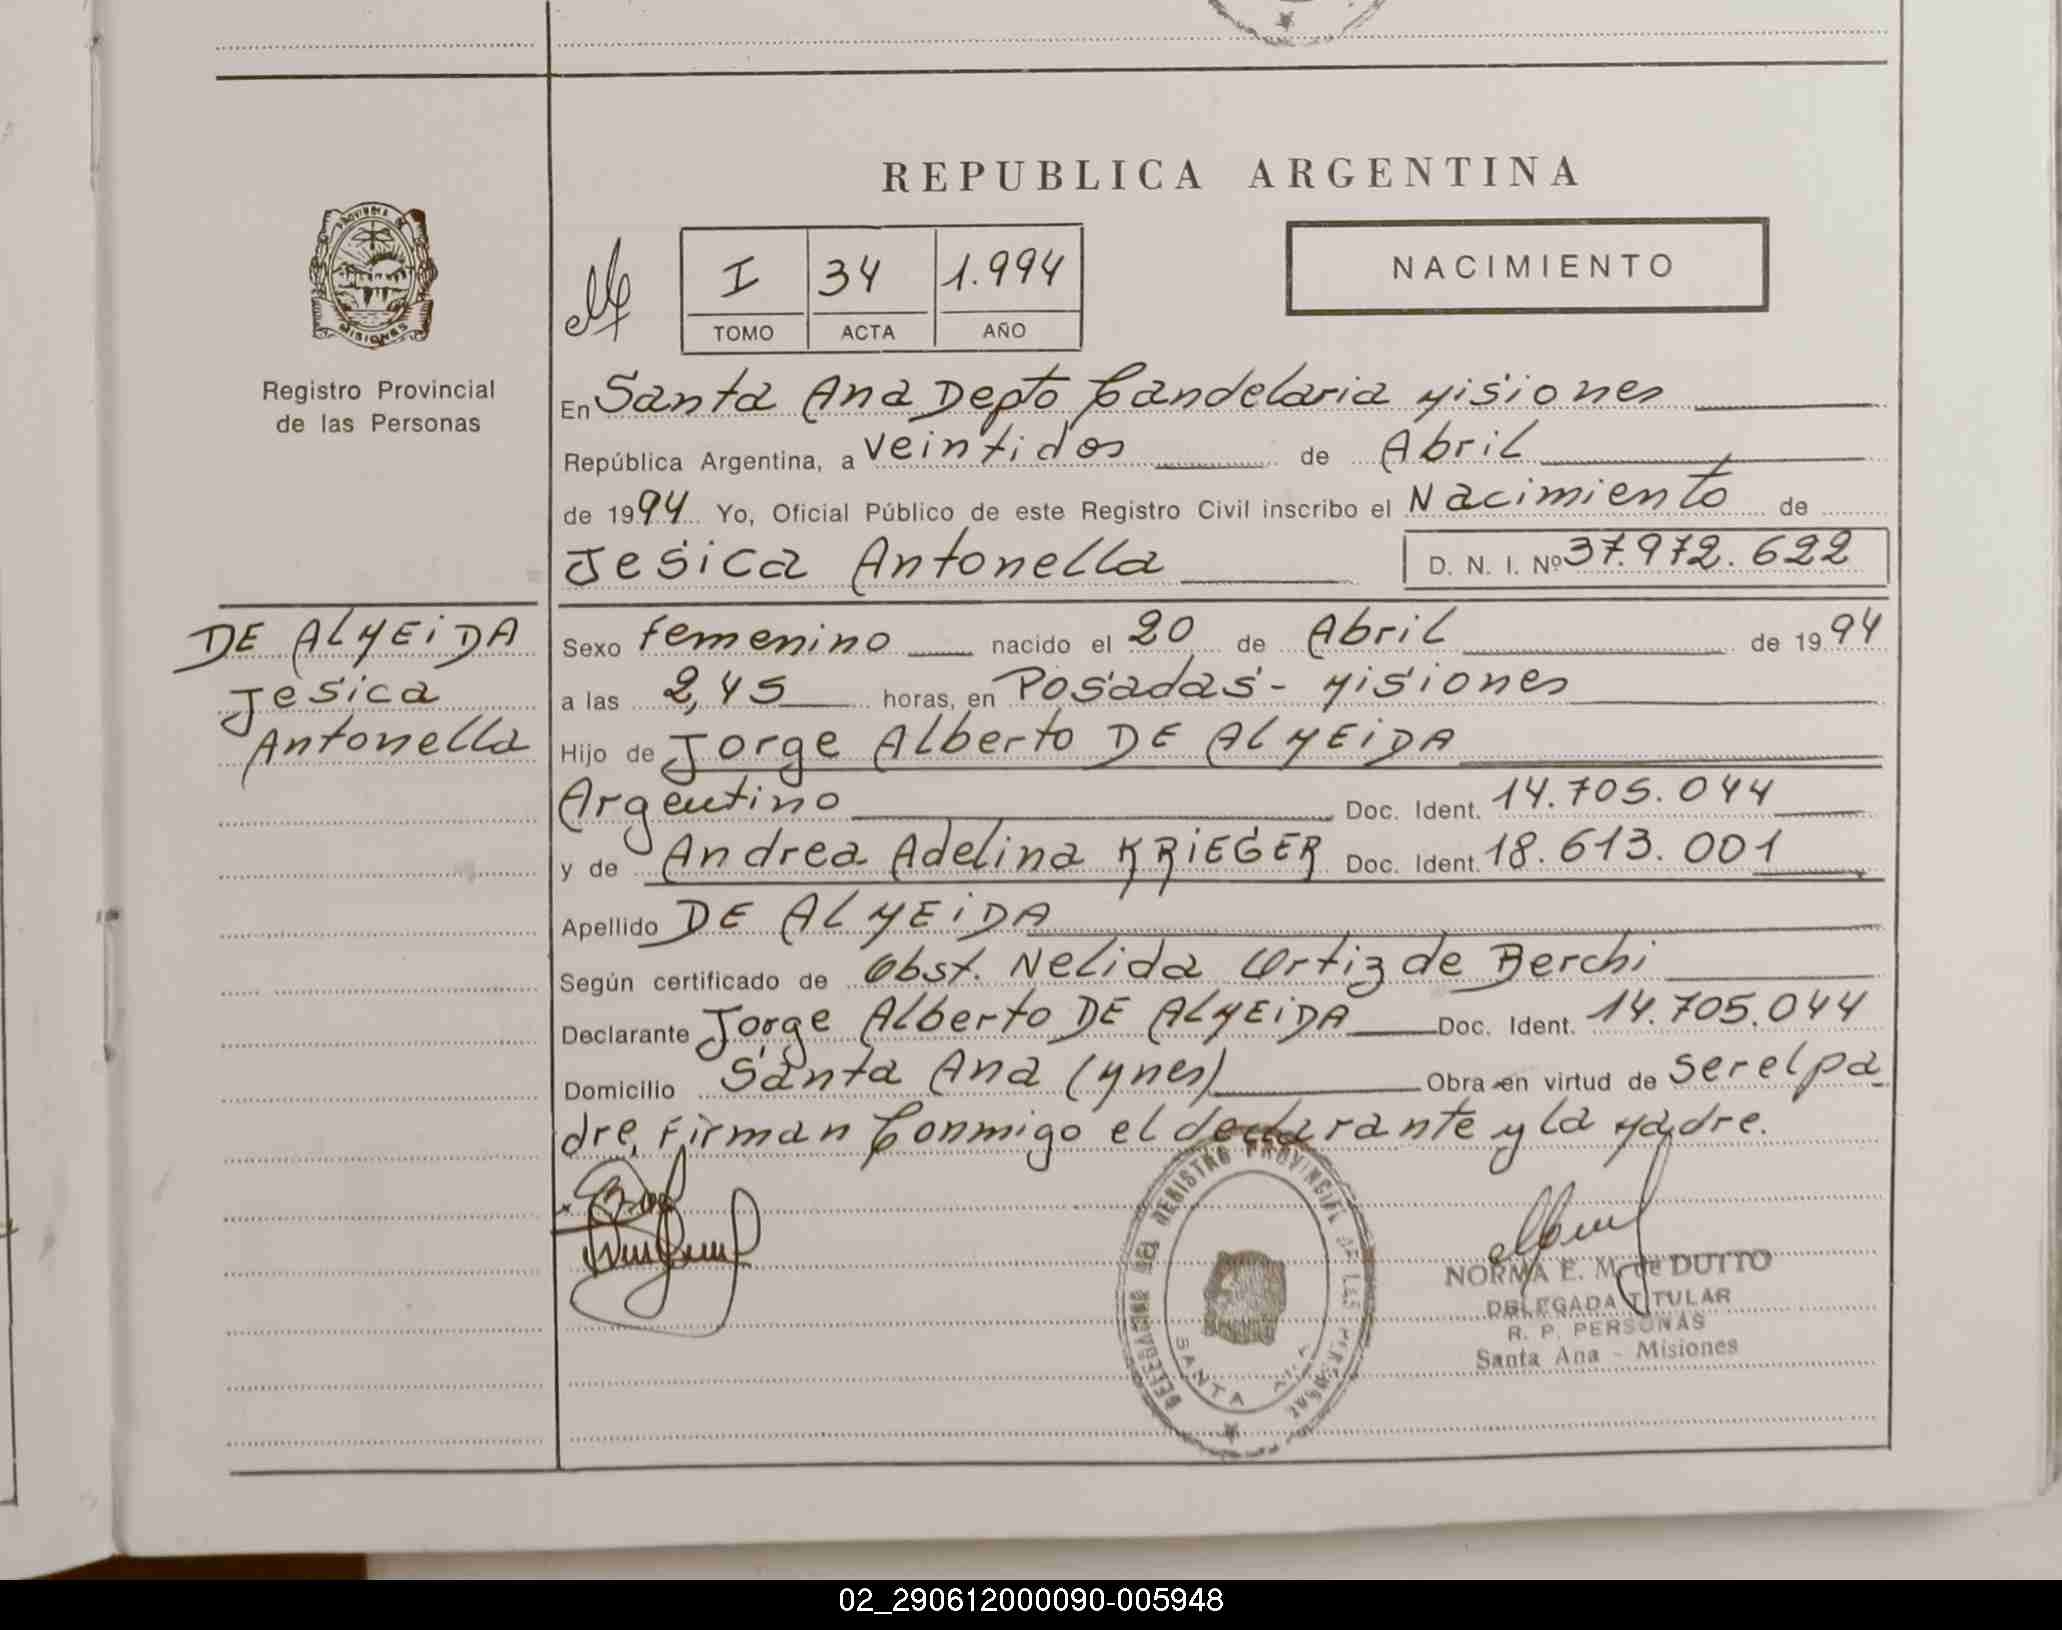 REPUBLICA ARGENTINA
PROVINCIA DE
MISIONES
Registro Provincial
de las Personas
I 34 1.994
TOMO ACTA AÑO
NACIMIENTO
En Santa Ana Depto Candelaria Misiones
República Argentina, a veintidos de Abril
de 1994 Yo, Oficial Público de este Registro Civil inscribo el Nacimiento de
Jesica Antonella D. N. I. Nº 37.972.622
DE ALMEIDA
Jesica
Antonella
Sexo femenino nacido el 20 de Abril de 1994
a las 2,45 horas, en Posadas - Misiones
Hijo de Jorge Alberto DE ALMEIDA
Argentino Doc. Ident. 14.705.044
y de Andrea Adelina KRIEGER Doc. Ident. 18.613.001
Apellido DE ALMEIDA
Según certificado de Obst. Nelida Ortiz de Berchi
Declarante Jorge Alberto DE ALMEIDA Doc. Ident. 14.705.044
Domicilio Santa Ana (Mnes) Obra en virtud de ser el pa
dre, Firman Conmigo el declarante y la Madre.
DELEGACION DEL REGISTRO PROVINCIAL DE LAS PERSONAS
SANTA ANA
NORMA E. M. de DUTTO
DELEGADA TITULAR
R. P. PERSONAS
Santa Ana - Misiones
02_290612000090-005948